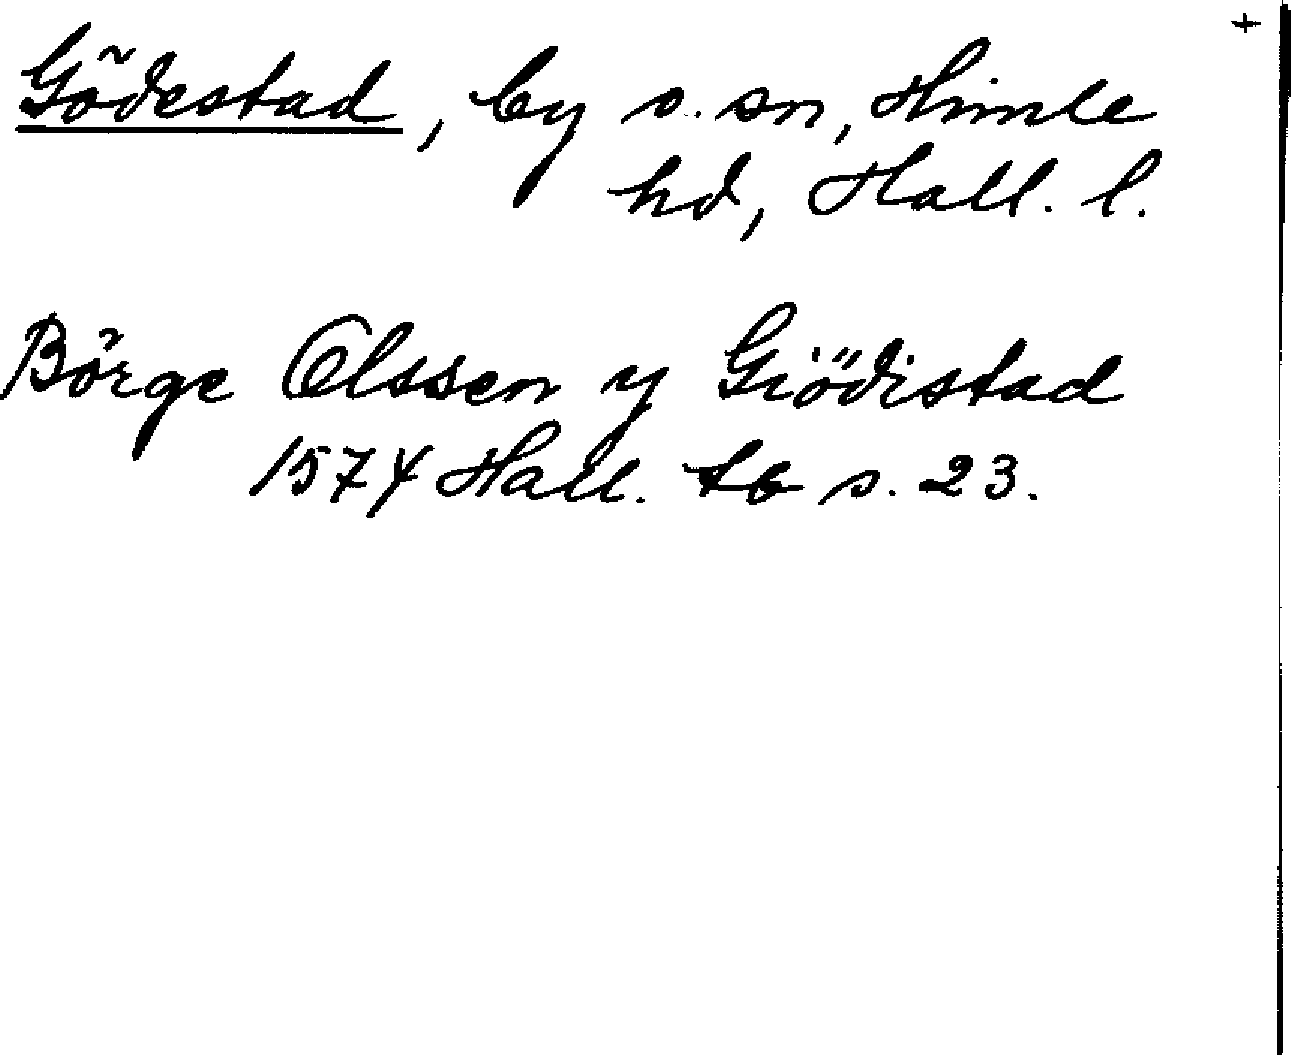 +
Gödestad, by o. sn, Himle
hd, Hall. l.
Börge Olssen y Giödistad
1574 Hall. tb s. 23.